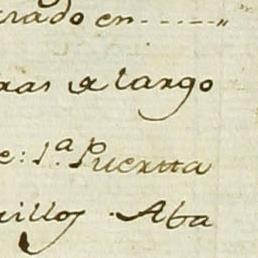 rado en - - - - - „
ras de largo
e: 1.ª Puertta
uillos . Aba